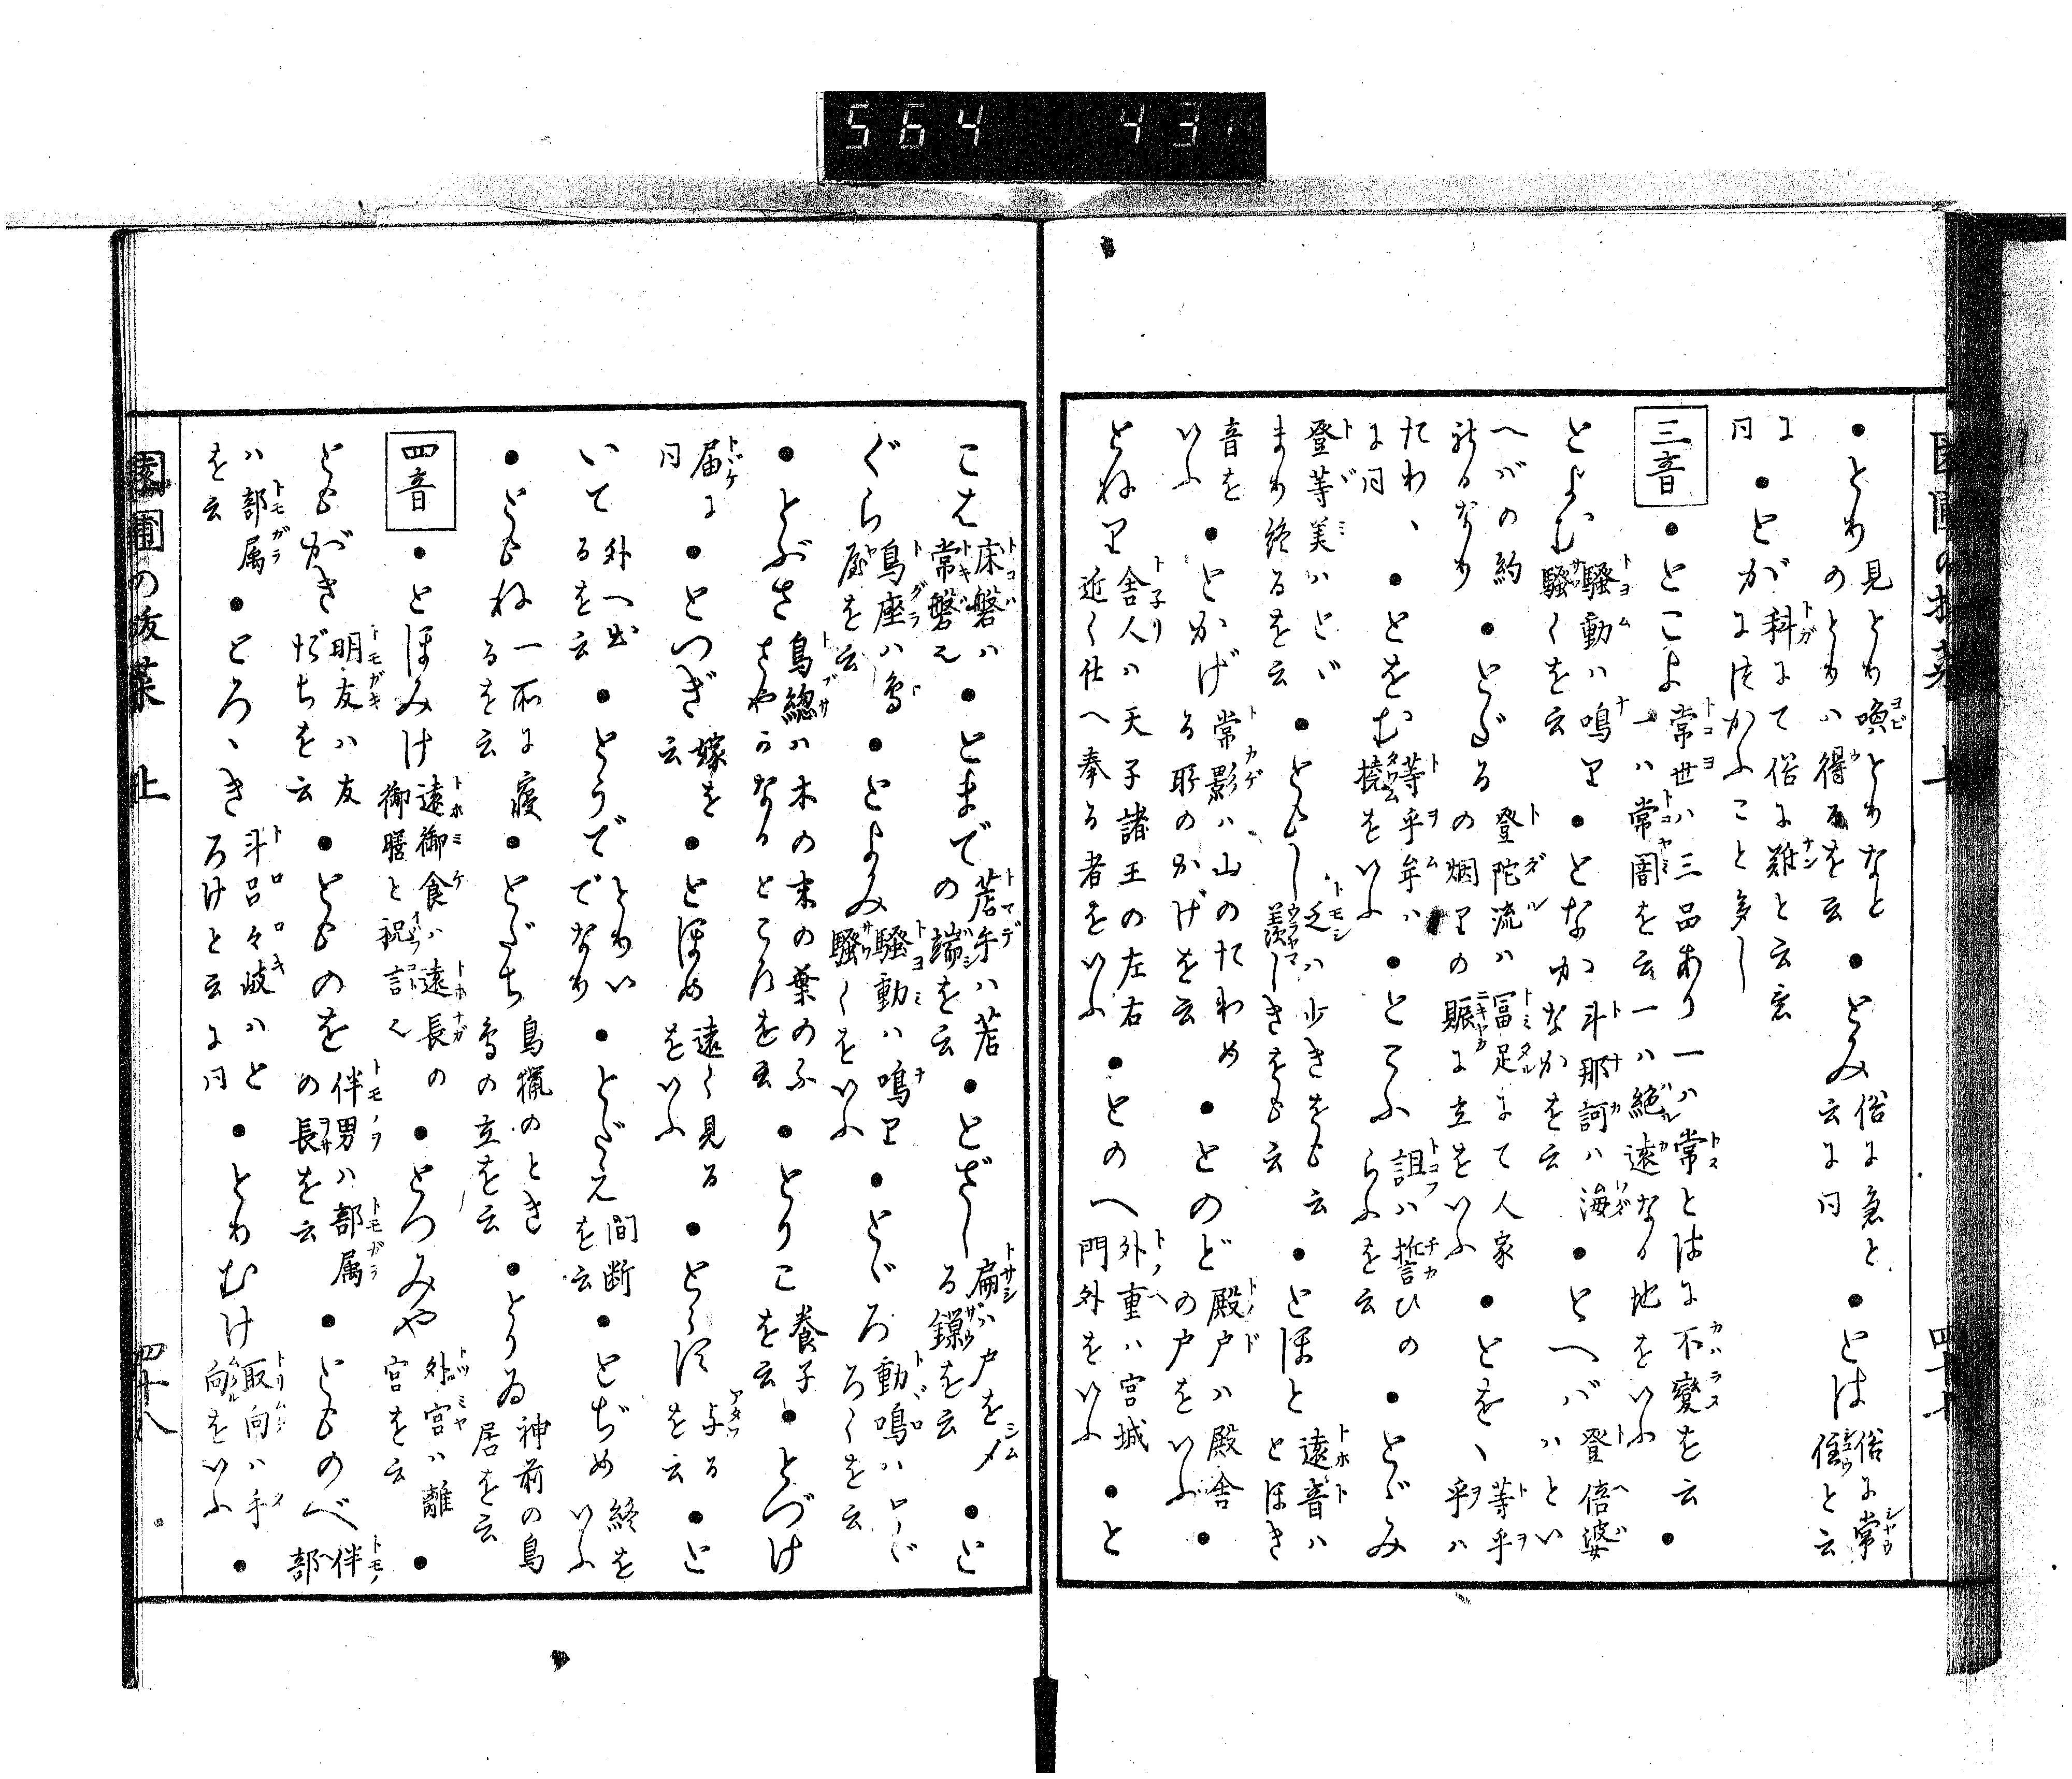 564 43
●とり 見とり喚とりなと のとりハ得るを云 ●とみ 俗に急と云に同 ●とは 俗に常住と云
に同 ●とが 科にて俗に難と云意につかふこと多し
三音 ●とこよ 常世ハ三品あり一ハ常とはに不變を云一ハ常闇を云一ハ絶遠なる地をいふ ●
とよむ 騒動ハ鳴り騒くを云 ●となか 斗那訶ハ海なかを云 ●とへバ 登倍婆ハとい
へバの約 ●とだる 登陀流ハ冨足にて人家の烟りの賑に立をいふ ●とをゝ 等乎乎ハ
たわゝに同 ●とをむ 等乎牟ハ撓をいふ ●とこふ 詛ハ誓ひの らふを云 ●とゞみ
登等美ハとゞまり終るを云 ●ともし 乏ハ少きをも云羨しきをも云 ●とほと 遠音ハとほき
音をいふ ●とかげ 常影ハ山のたわめる所のかげを云 ●とのど 殿戸ハ殿舎の戸をいふ ●
とねり 舎人ハ天子諸王の左右近く仕へ奉る者をいふ ●とのへ 外重ハ宮城門外をいふ ●と
こは 床磐ハ常磐 ●とまで 苫手ハ苫の端を云 ●とざし 扃ハ戸をしめる鎖を云 ●と
ぐら 鳥座ハ鳥屋を云 ●とよみ 騒動ハ鳴り騒くをいふ ●とゞろ 動鳴ハとゞろくを云
●とぶさ 鳥總ハ木の末の葉のふさやかなるところを云 ●とりこ 養子を云 ●とづけ
届に同 ●とつぎ 嫁を云 ●とほめ 遠く見るをいふ ●とらす 与るを云 ●と
いて 外へ出るを云 ●とうで とりいでなり ●とだえ 間断を云 ●とぢめ 終をいふ
●ともね 一所に寝るを云 ●とだち 鳥猟のとき鳥の立を云 ●とりゐ 神前の鳥居を云
四音 ●とほみけ 遠御食ハ遠長の御膳と祝言 ●とつみや 外宮ハ離宮を云 ●
ともがき 明友ハ友だちを云 ●とものを 伴男ハ部属の長を云 ●とものべ 伴部
ハ部属を云 ●とろゝき 斗呂々岐ハとろけと云に同 ●とりむけ 取向ハ手向をいふ ●
園圃の抜菜 上
四十八